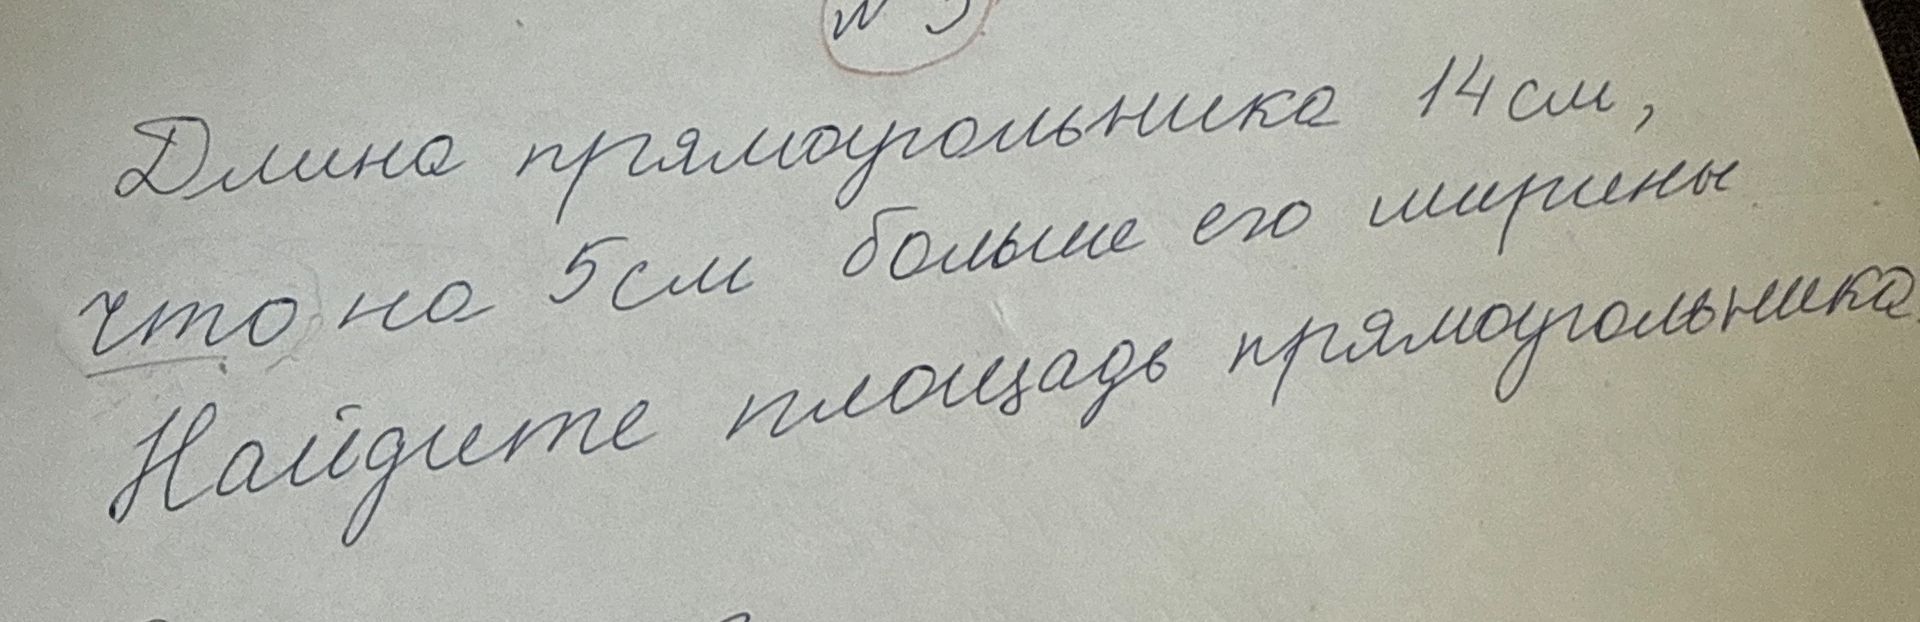 Длина прямоугольника 14 см,
что на 5 см больше его ширины
Найдите площадь прямоугольника